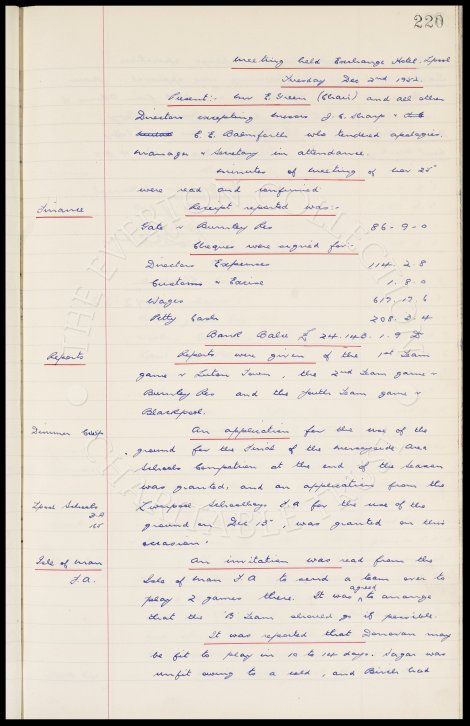 220
Meeting held Exchange Hotel. Lpool
Tuesday Dec 2nd 1952.
Present:- Mr E. Green (Chair) and all other
Directors excepting Messrs J. C. Sharp &
C. E. Balmforth who tendered apologies.
Manager & Secretary in attendance.
Minutes of meeting of Nov 25th
were read and confirmed.
Finance
Receipt reported was:-
Gate v Burnley Res 86-9-0
Cheques were signed for:-
Directors Expenses 114.2.8
Customs & Excise 1.8.0
Wages 617.17.6
Petty Cash 208.2.4
Bank Balce £ 24.148.1.9 D
Reports
Reports were given of the 1st Team
game v Luton Town, the 2nd Team game v
Burnley Res and the Youth Team game v
Blackpool.
Dimmer Cup
An application for the use of the
ground for the Final of the Merseyside Area
Schools Compation at the end of the season
was granted, and an application from the
Lpool Schools
F.A
Liverpool Schoolboys F.A for the use of the
ground on Dec 15th, was granted on this
occasion.
Isle of Man
F.A.
An invitation was read from the
Isle of Man F A to send a team over to
play 2 games there. It was agreed to arrange
that the 'B' Team should go if possible.
It was reported that Donovan may
be fit to play in 10 to 14 days. Sagar was
unfit owing to a cold, and Birch had
THE EVERTON COLLECTION
CHARITABLE TRUST